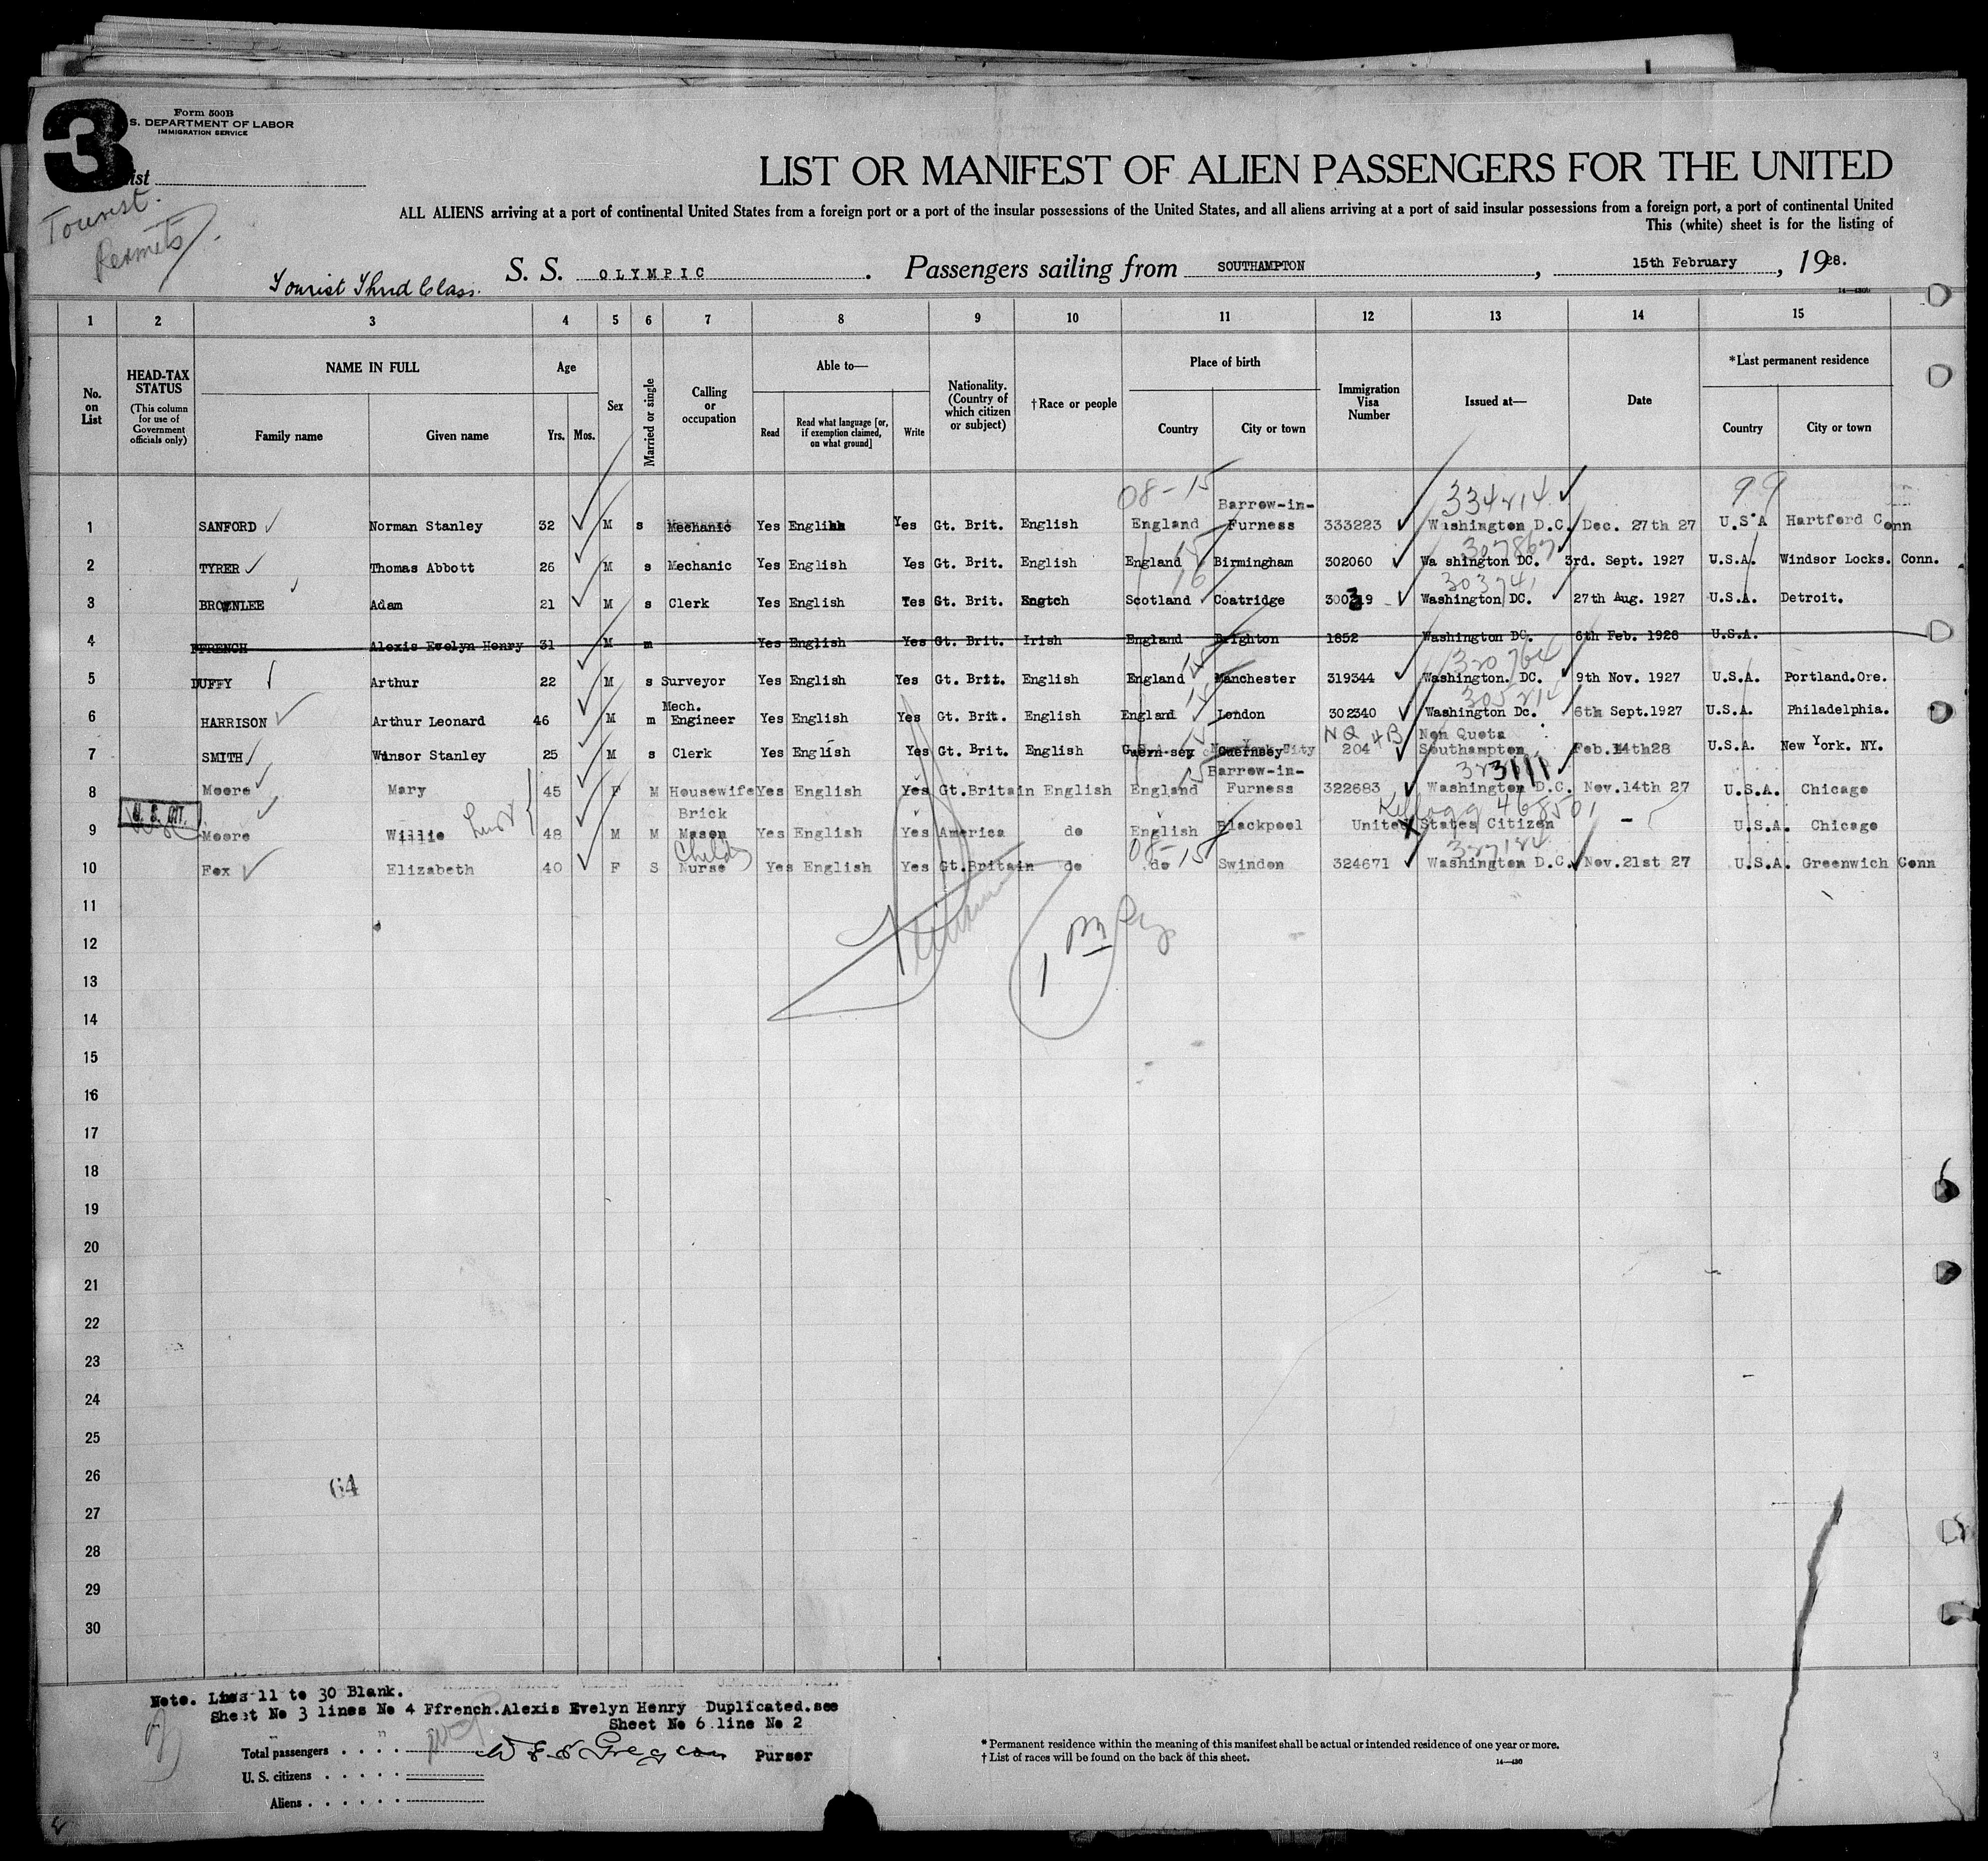 3
Form 500B
S. DEPARTMENT OF LABOR
IMMIGRATION SERVICE
ist
Tourist.
Permits
LIST OR MANIFEST OF ALIEN PASSENGERS FOR THE UNITED
ALL ALIENS arriving at a port of continental United States from a foreign port or a port of the insular possessions of the United States, and all aliens arriving at a port of said insular possessions from a foreign port, a port of continental United
This (white) sheet is for the listing of
Tourist Third Class.
S. S. OLYMPIC. Passengers sailing from SOUTHAMPTON, 15th February, 1928.
1 2 3 4 5 6 7 8 9 10 11 12 13 14 15
No. on List
HEAD-TAX STATUS (This column for use of Government officials only)
NAME IN FULL Family name Given name
Age Yrs. Mos.
Sex
Married or single
Calling or occupation
Able to— Read Read what language [or, if exemption claimed, on what ground] Write
Nationality. (Country of which citizen or subject)
†Race or people
Place of birth Country City or town
Immigration Visa Number
Issued at—
Date
*Last permanent residence Country City or town
08-15 334214 99
1 SANFORD Norman Stanley 32 M s Mechanic Yes English Yes Gt. Brit. English England Barrow-in-Furness 333223 Washington D.C. Dec. 27th 27 U.S.A Hartford Conn
15 307867
2 TYRER Thomas Abbott 26 M s Mechanic Yes English Yes Gt. Brit. English England Birmingham 302060 Wa shington DC. 3rd. Sept. 1927 U.S.A. Windsor Locks. Conn.
16 303741
3 BROWNLEE Adam 21 M s Clerk Yes English Yes Gt. Brit. Scotland Coatridge 300319 Washington DC. 27th Aug. 1927 U.S.A. Detroit.
4 FFRENCH Alexis Evelyn Henry 31 M m Yes English Yes Gt. Brit. Irish England Brighton 1852 Washington DC. 6th Feb. 1928 U.S.A.
15 320764
5 DUFFY Arthur 22 M s Surveyor Yes English Yes Gt. Brit. English England Manchester 319344 Washington. DC. 9th Nov. 1927 U.S.A. Portland.Ore.
305214
6 HARRISON Arthur Leonard 46 M m Mech. Engineer Yes English Yes Gt. Brit. English England London 302340 Washington Dc. 6th Sept.1927 U.S.A. Philadelphia.
NQ 4B
7 SMITH Winsor Stanley 25 M s Clerk Yes English Yes Gt. Brit. English Guernsey City 204 Non Quota Southampton Feb.14th28 U.S.A. New York. NY.
8 Moore Mary 45 F M Housewife Yes English Yes Gt.Britain English England Barrow-in-Furness 322683 Washington D.C. Nov.14th 27 U.S.A. Chicago
Kellogg 468501
9 Moore Willie 48 M M Brick Mason Yes English Yes America do English Blackpool United States Citizen - U.S.A. Chicago
08-15 327184
10 Fox Elizabeth 40 F S Childs Nurse Yes English Yes Gt.Britain do do Swindon 324671 Washington D.C. Nov.21st 27 U.S.A. Greenwich Conn
11
12
13
14
15
16
17
18
19
20
21
22
23
24
25
26
64
27
28
29
30
Note. Lines 11 to 30 Blank.
Sheet No 3 lines No 4 Ffrench.Alexis Evelyn Henry Duplicated.see
Sheet No 6.line No 2
Total passengers . . . . Purser
U. S. citizens . . . . .
Aliens . . . . . .
* Permanent residence within the meaning of this manifest shall be actual or intended residence of one year or more.
† List of races will be found on the back of this sheet.
14—430